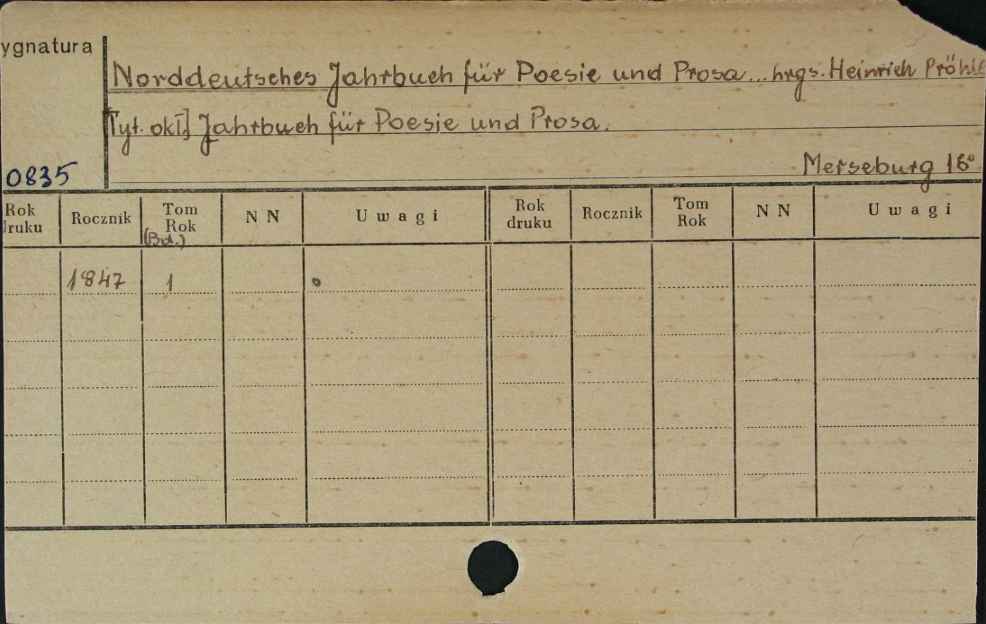 ygnatura
Norddeutsches Jahrbuch für Poesie und Prosa... hrgs. Heinrich Pröhle
[Tyt. okł.] Jahrbuch für Poesie und Prosa.
0835
Merseburg 16°
Rok druku Rocznik Tom Rok (Bd.) N N Uwagi Rok druku Rocznik Tom Rok N N Uwagi
1847 1